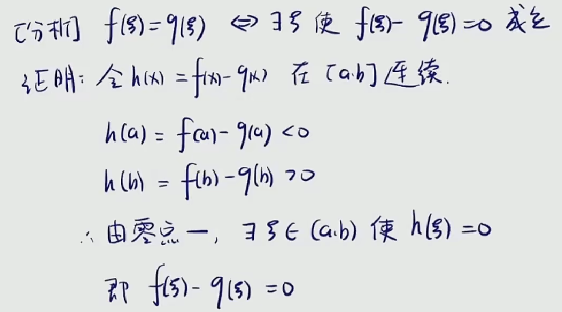 [分析] f(ξ)=g(ξ) ⇔ ∃ξ 使 f(ξ)-g(ξ)=0 成立
证明: 令h(x)=f(x)-g(x) 在[a.b]连续.
h(a)=f(a)-g(a)<0
h(b)=f(b)-g(b)>0
∴由零点一, ∃ξ∈(a.b) 使h(ξ)=0
即 f(ξ)-g(ξ)=0